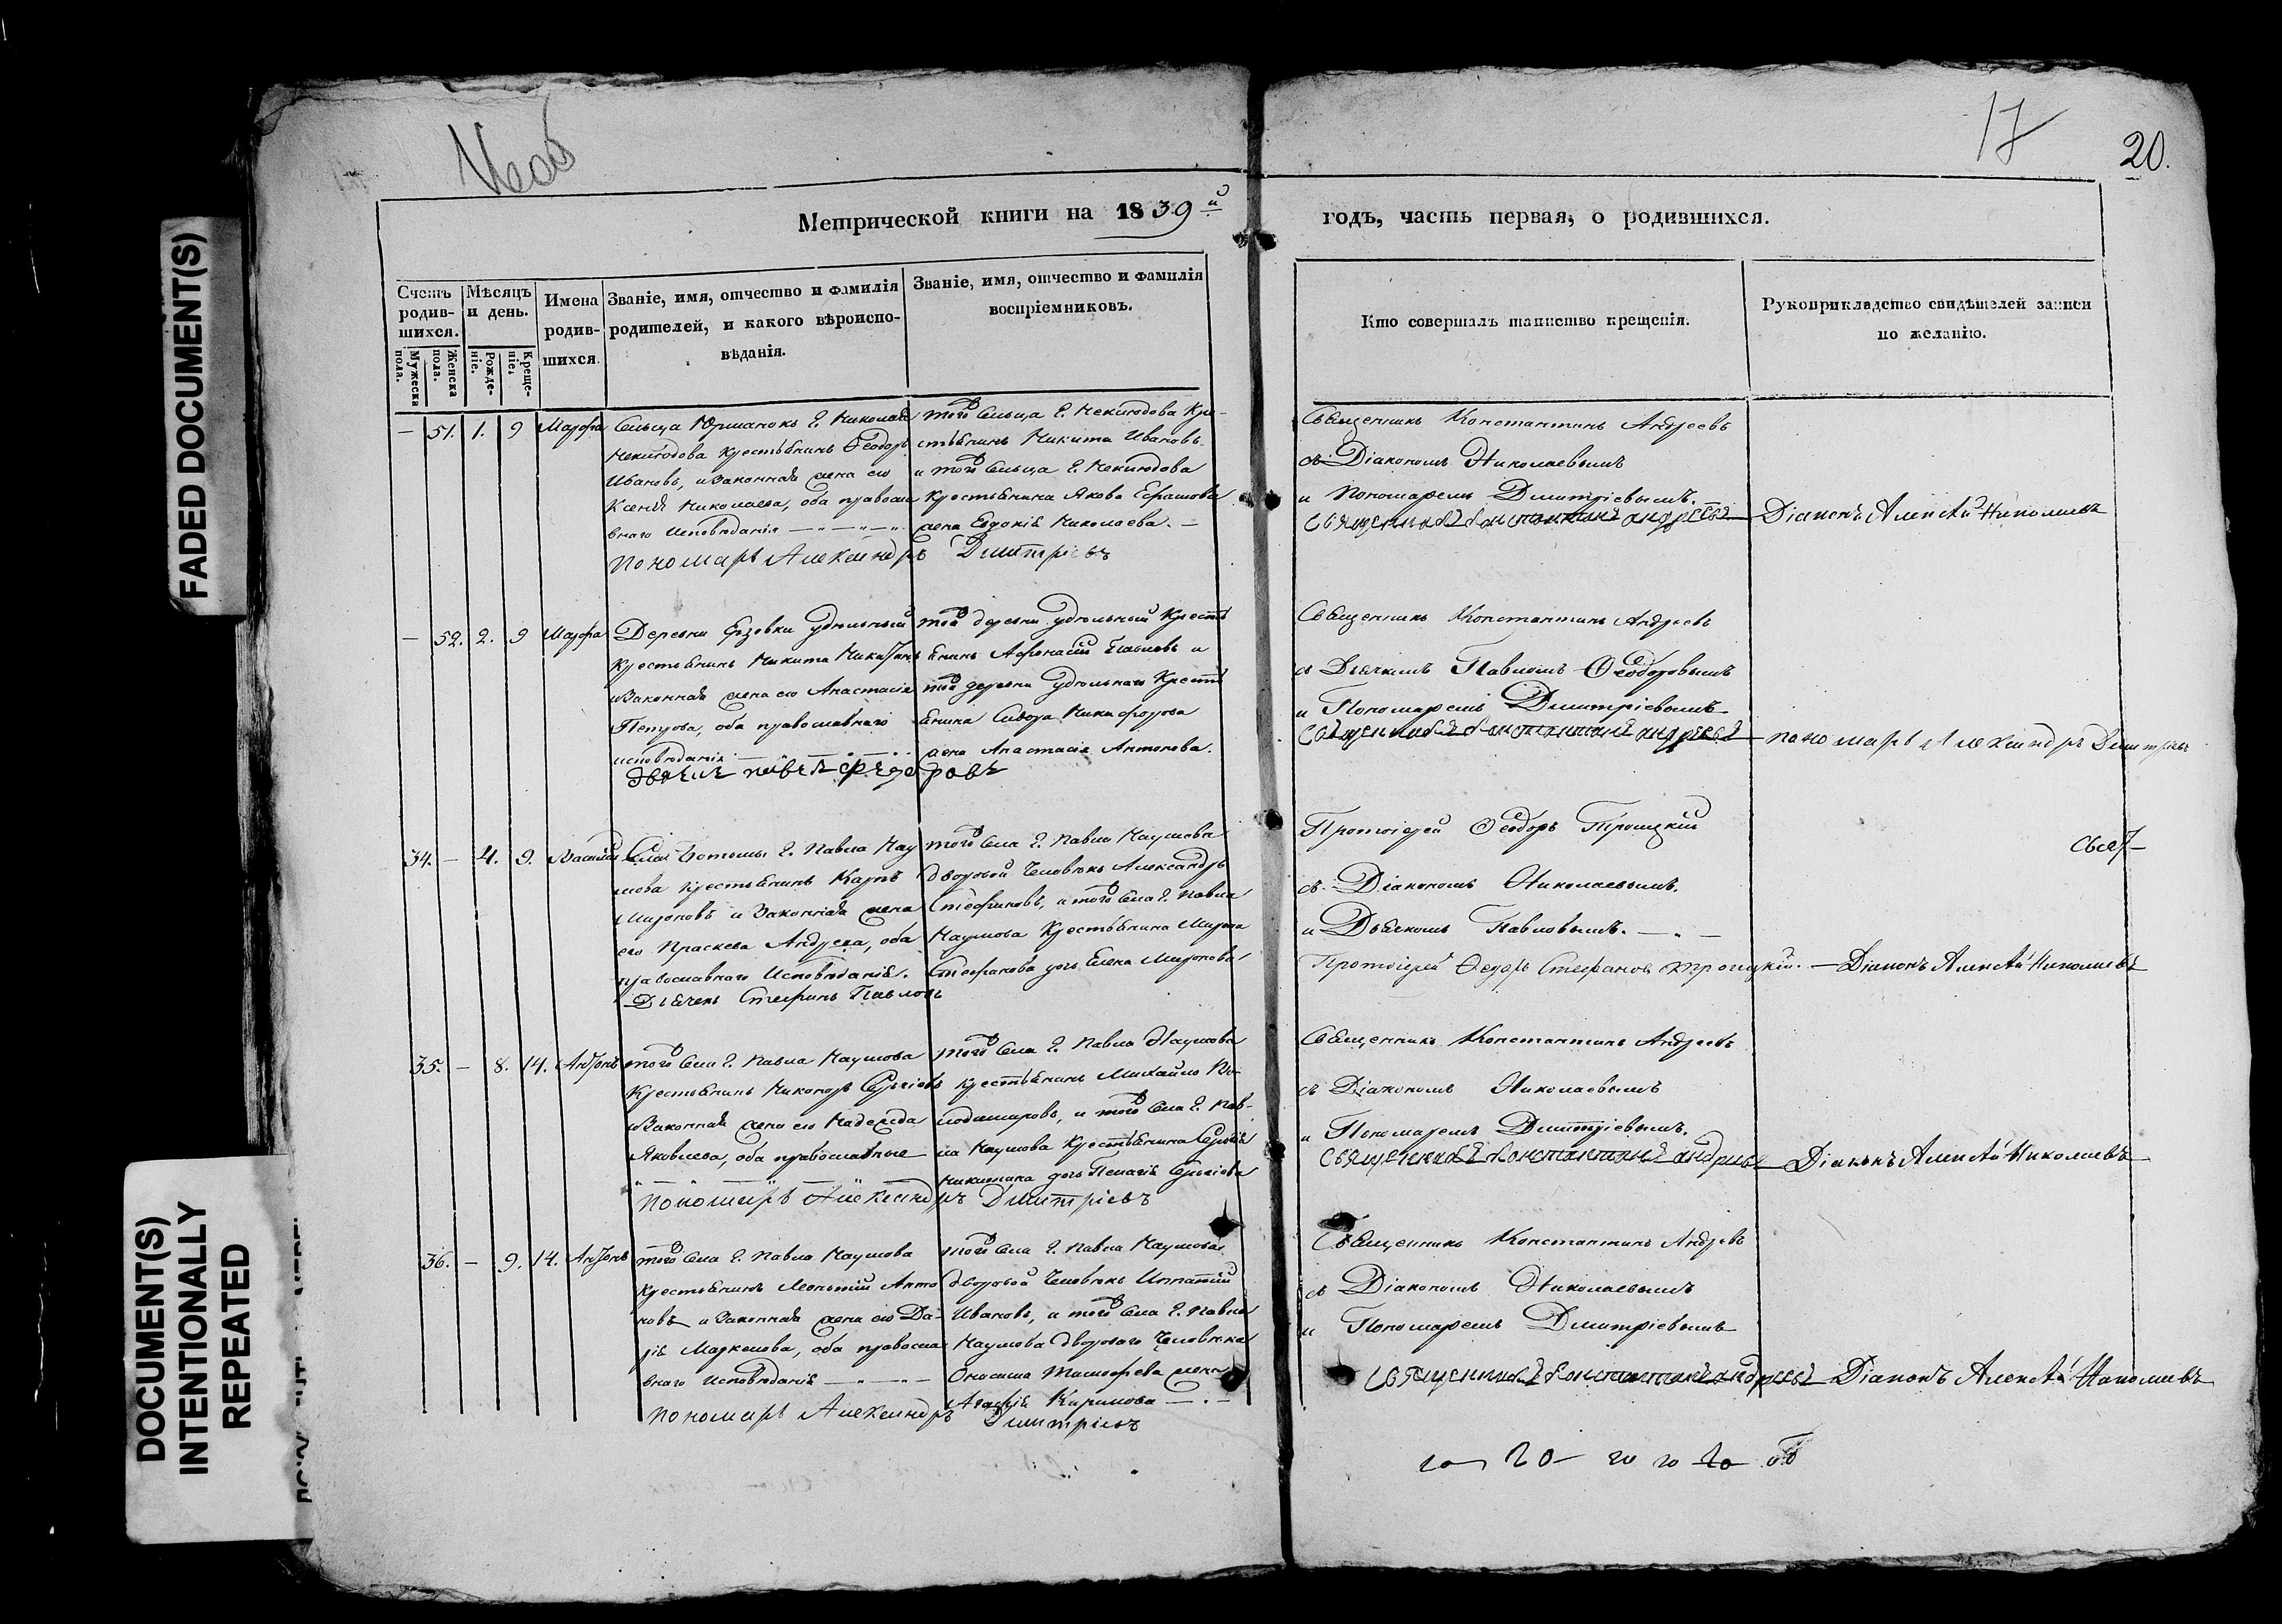 FADED DOCUMENT(S)
DOCUMENT(S)
INTENTIONALLY
REPEATED
17
20.
Метрической книги на 1839й
годъ, часть первая, о родившихся.
Счетъ родив-шихся.
Мужеска пола.
Женска пола.
Мѣсяцъ и день.
Рожде-ніе.
Креще-ніе.
Имена родив-шихся.
Званіе, имя, отчество и фамилія
родителей, и какого вѣроиспо-
вѣданія.
Званіе, имя, отчество и фамилія
воспріемниковъ.
Кто совершалъ таинство крещенія.
Рукоприкладство свидѣтелей записи
по желанію.
— 51. 1. 9 Марфа
Сельца Юрманокъ Г. Николая
Неклюдова крестьянинъ Ѳеодоръ
Ивановъ, и законная жена его
Ксенія Николаева, оба правосла
внаго исповѣданія
пономарь Александръ Дмитріевъ
того сельца Г. Неклюдова кре-
стьянинъ Никита Ивановъ
и того сельца Г. Неклюдова
крестьянина Якова Ефимова
жена Евдокія Николаева. —
Священникъ Константинъ Андреевъ
съ Діакономъ Николаевымъ
и Пономаремъ Димитріевымъ.
Священникъ Константинъ Андреевъ
Діаконъ Алексѣй Николаевъ
— 52. 2. 9 Марфа
Деревни удѣльный
крестьянинъ Никита Никитинъ
и законная жена его Анастасія
Петрова, оба православнаго
исповѣданія
дьячекъ павелъ федоровъ
той деревни удѣльный кресть
янинъ Афанасій Павловъ и
той деревни удѣльнаго кресть
янина Сидора Никифорова
жена Анастасія Антонова.
Священникъ Константинъ Андреевъ
съ Дьячкомъ Павломъ Ѳеодоровымъ
и Пономаремъ Димитріевымъ
Священникъ Константинъ Андреевъ
пономарь Александръ Дмитріевъ
34. — 4. 9. Василій
Села Ботьмы Г. Павла Нау
мова крестьянинъ Карпъ
Мироновъ и законная жена
его Праскева Андреева, оба
православнаго исповѣданія.
Дьячекъ Стефанъ Павловъ
того села Г. Павла Наумова
дворовой человѣкъ Александръ
Стефановъ, и того села Г. Павла
Наумова крестьянина Мирона
Стефанова дочь Елена Миронова
Протоіерей Ѳеодоръ Троицкій
съ Діакономъ Николаевымъ.
и Дьячкомъ Павловымъ. —
Протоіерей Ѳедоръ Стефановъ Троицкій.
Діаконъ Алексѣй Николаевъ
35. — 8. 14. Антонъ
того села Г. Павла Наумова
крестьянинъ Никоноръ Сергіевъ
и законная жена его Надежда
Яковлева, оба православные
пономарь Александръ Дмитріевъ
того села Г. Павла Наумова
крестьянинъ Михайло Во-
лодимировъ, и того села Г. Пав-
ла Наумова крестьянина Сергія
дочь Пелагія Сергіева
Священникъ Константинъ Андреевъ
съ Діакономъ Николаевымъ
и Пономаремъ Димитріевымъ.
Священникъ Константинъ Андреевъ
Діаконъ Алексѣй Николаевъ
36. — 9. 14. Антонъ
того села Г. Павла Наумова
крестьянинъ Леонтій Анто
новъ и законная жена его Да-
рія Маркелова, оба правосла
внаго исповѣданія
пономарь Александръ Дмитріевъ
того села Г. Павла Наумова
дворовой человѣкъ Игнатій
Ивановъ, и того села Г. Павла
Наумова дворового человѣка
Онисима Тимофеева жена
Агафія Кирилова —
Священникъ Константинъ Андреевъ
съ Діакономъ Николаевымъ
и Пономаремъ Димитріевымъ
Священникъ Константинъ Андреевъ
Діаконъ Алексѣй Николаевъ